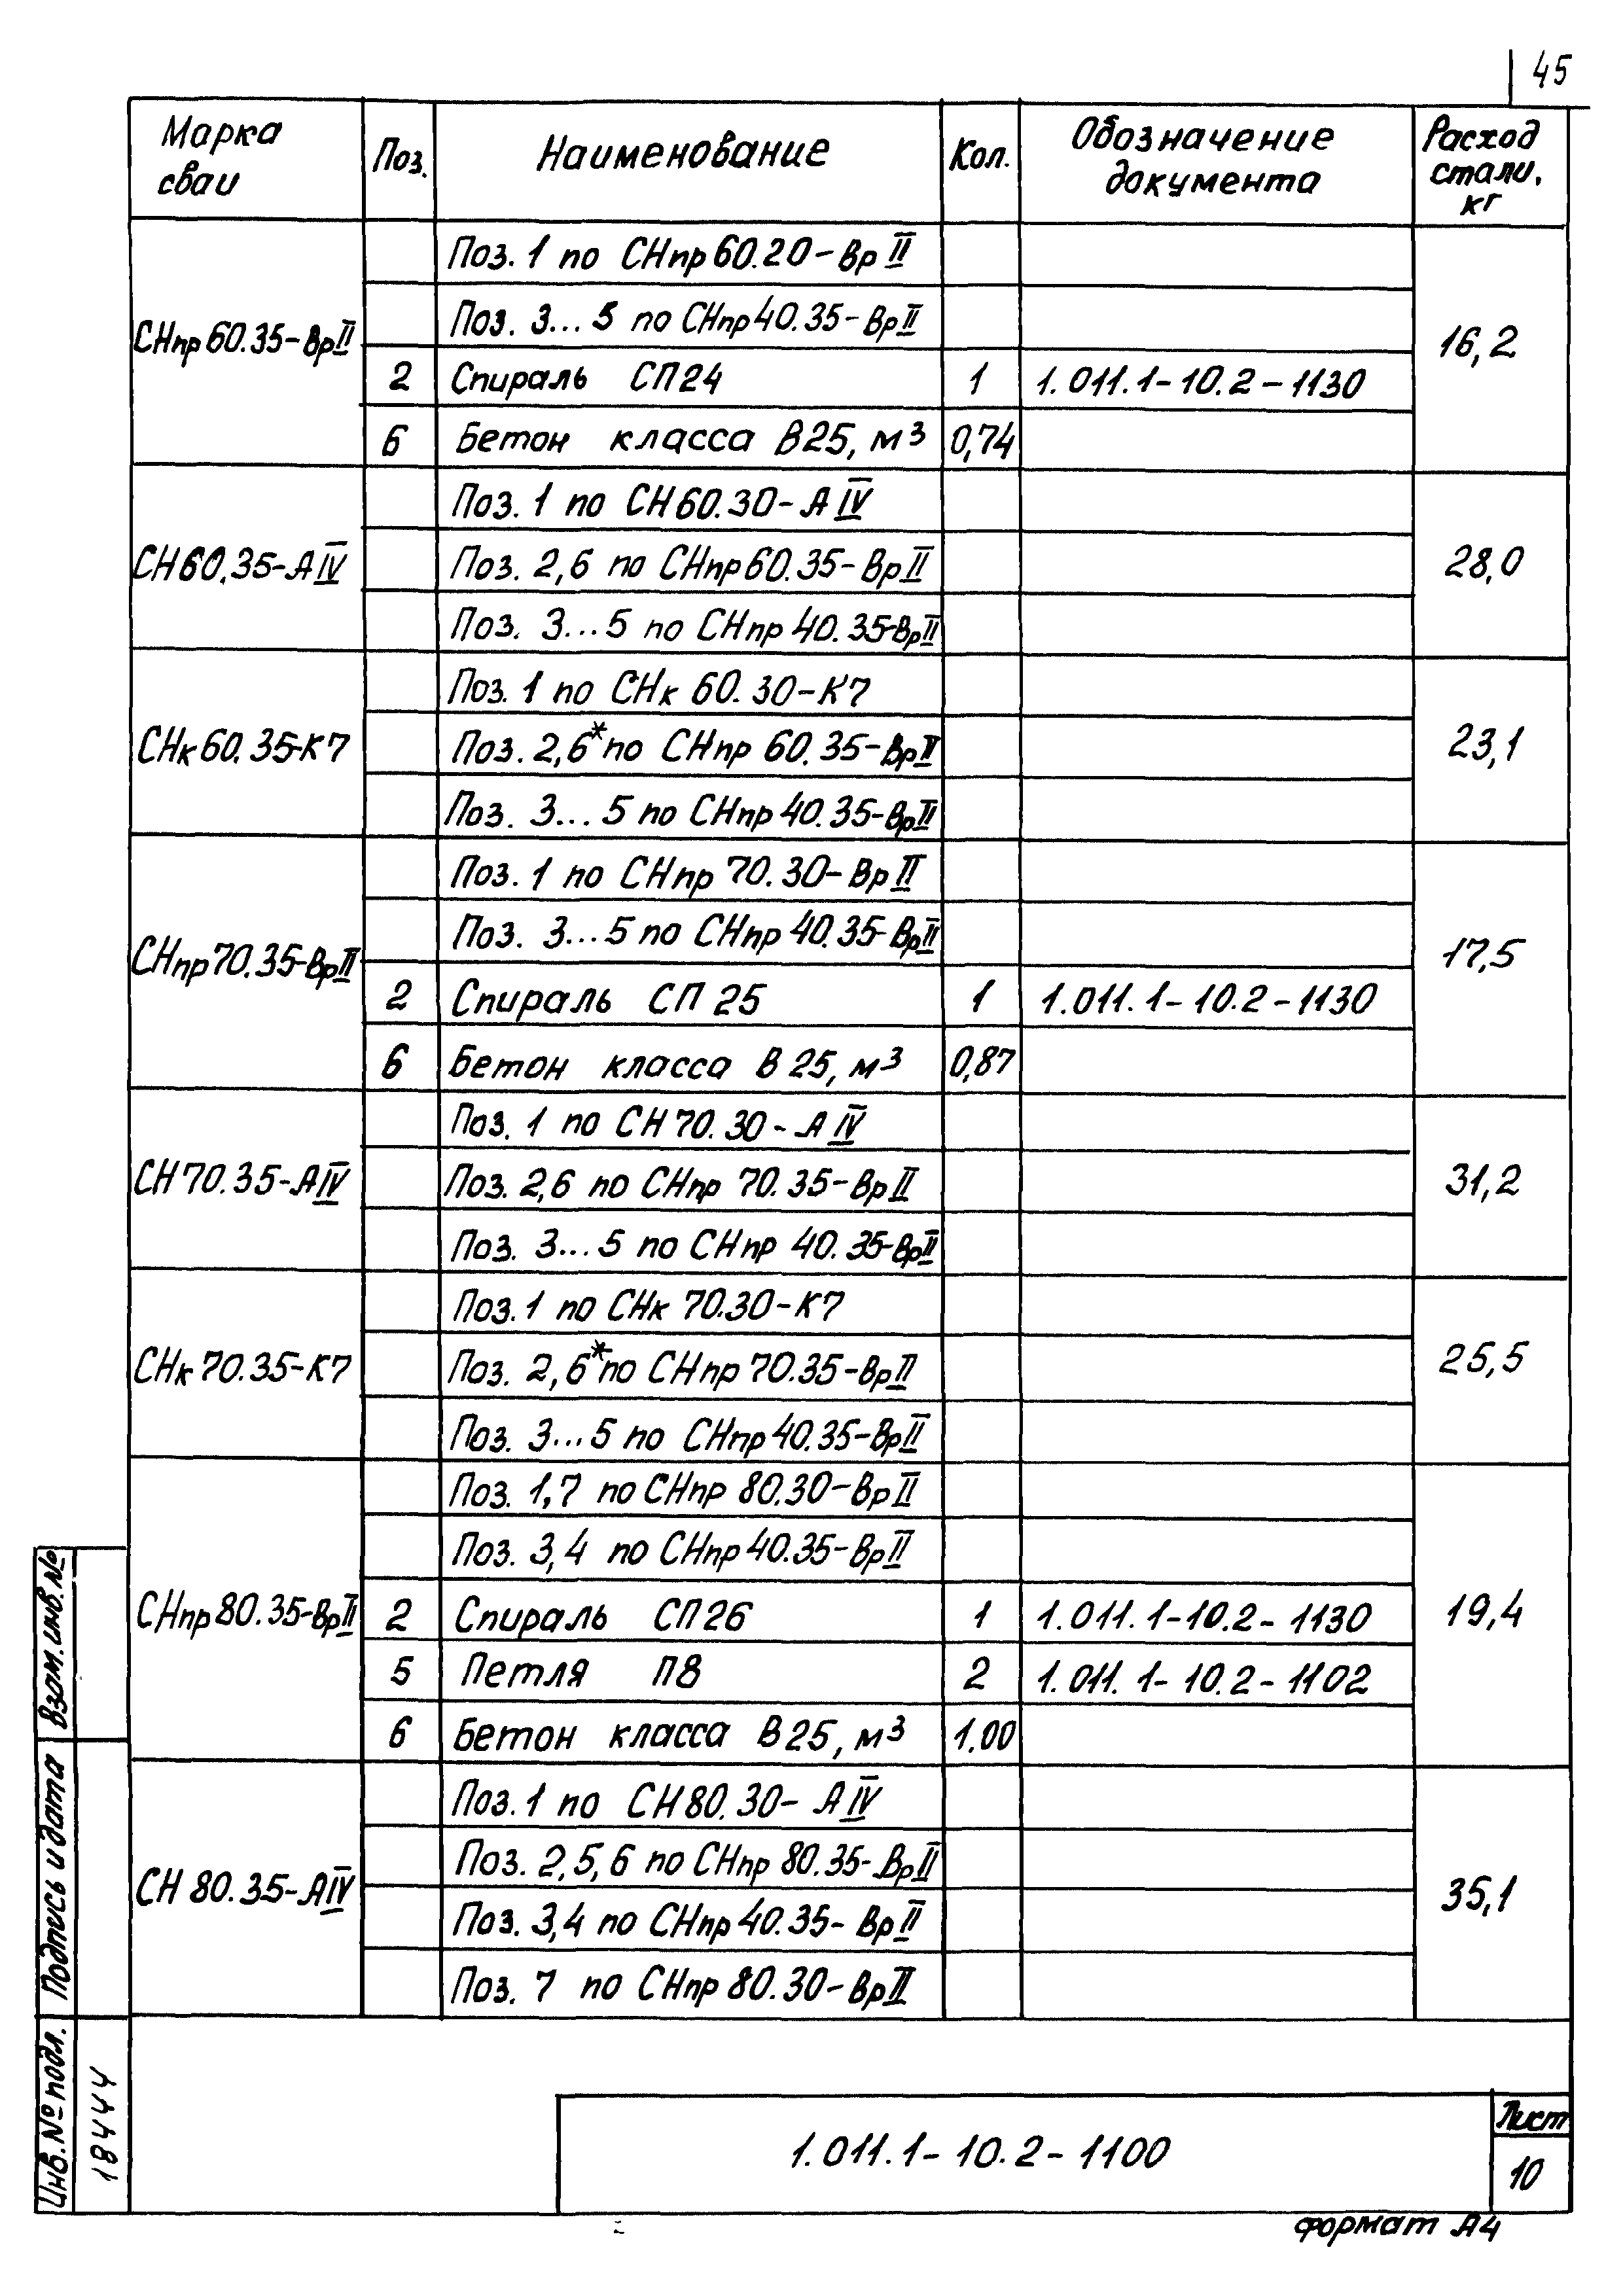 45
Марка сваи | Поз. | Наименование | Кол. | Обозначение документа | Расход стали, кг
СНпр60.35-ВрII | | Поз. 1 по СНпр60.20-ВрII | | | 16,2
Поз. 3...5 по СНпр40.35-ВрII
2 | Спираль СП24 | 1 | 1.011.1-10.2-1130
6 | Бетон класса В25, м³ | 0,74
СН60.35-АIV | | Поз. 1 по СН60.30-АIV | | | 28,0
Поз. 2,6 по СНпр60.35-ВрII
Поз. 3...5 по СНпр40.35-ВрII
СНк60.35-К7 | | Поз. 1 по СНк 60.30-К7 | | | 23,1
Поз. 2,6* по СНпр 60.35-ВрII
Поз. 3...5 по СНпр40.35-ВрII
СНпр70.35-ВрII | | Поз. 1 по СНпр 70.30-ВрII | | | 17,5
Поз. 3...5 по СНпр 40.35-ВрII
2 | Спираль СП 25 | 1 | 1.011.1-10.2-1130
6 | Бетон класса В 25, м³ | 0,87
СН70.35-АIV | | Поз. 1 по СН70.30-АIV | | | 31,2
Поз. 2,6 по СНпр 70.35-ВрII
Поз. 3...5 по СНпр 40.35-ВрII
СНк70.35-К7 | | Поз. 1 по СНк 70.30-К7 | | | 25,5
Поз. 2,6* по СНпр70.35-ВрII
Поз. 3...5 по СНпр40.35-ВрII
СНпр80.35-ВрII | | Поз. 1,7 по СНпр 80.30-ВрII | | | 19,4
Поз. 3,4 по СНпр40.35-ВрII
2 | Спираль СП26 | 1 | 1.011.1-10.2-1130
5 | Петля П8 | 2 | 1.011.1-10.2-1102
6 | Бетон класса В25, м³ | 1.00
СН 80.35-АIV | | Поз. 1 по СН80.30-АIV | | | 35,1
Поз. 2,5,6 по СНпр 80.35-ВрII
Поз. 3,4 по СНпр40.35-ВрII
Поз. 7 по СНпр80.30-ВрII
Взам. инв. №
Подпись и дата
Инв. № подл.
18444
1.011.1-10.2-1100
Лист
10
формат А4